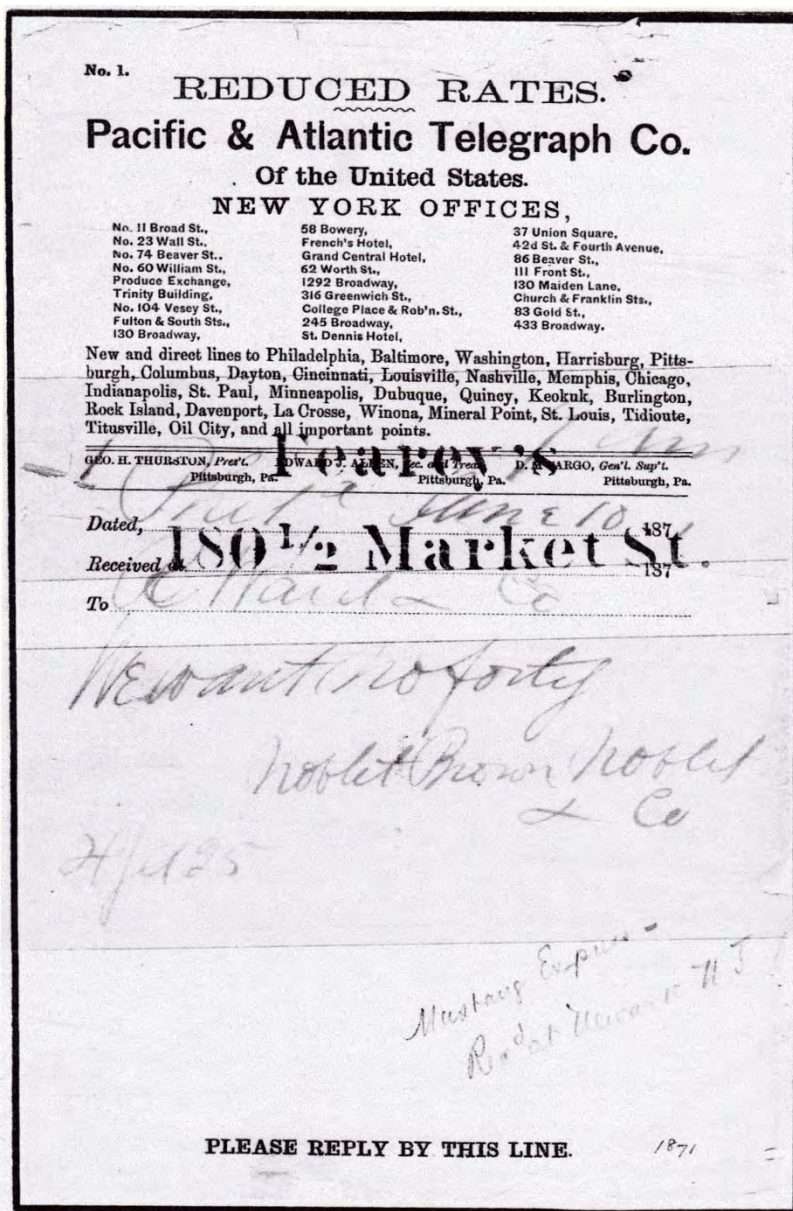 No. 1.
REDUCED RATES.
Pacific & Atlantic Telegraph Co.
Of the United States.
NEW YORK OFFICES,
No. 11 Broad St.,
No. 23 Wall St.,
No. 74 Beaver St.,
No. 60 William St.,
Produce Exchange,
Trinity Building,
No. 104 Vesey St.,
Fulton & South Sts.,
130 Broadway,
58 Bowery,
French's Hotel,
Grand Central Hotel,
62 Worth St.,
1292 Broadway,
316 Greenwich St.,
College Place & Rob'n. St.,
245 Broadway,
St. Dennis Hotel,
37 Union Square,
42d St. & Fourth Avenue,
86 Beaver St.,
111 Front St.,
130 Maiden Lane,
Church & Franklin Sts.,
83 Gold St.,
433 Broadway.
New and direct lines to Philadelphia, Baltimore, Washington, Harrisburg, Pitts-
burgh, Columbus, Dayton, Cincinnati, Louisville, Nashville, Memphis, Chicago,
Indianapolis, St. Paul, Minneapolis, Dubuque, Quincy, Keokuk, Burlington,
Rock Island, Davenport, La Crosse, Winona, Mineral Point, St. Louis, Tidioute,
Titusville, Oil City, and all important points.
Fearey's
GEO. H. THURSTON, Pres't. EDWARD J. ALLEN, Sec. and Treas. D. M'CARGO, Gen'l. Sup't.
Pittsburgh, Pa. Pittsburgh, Pa. Pittsburgh, Pa.
Dated, June 10 187
180 1/2 Market St.
Received at 187
To Ward & Co
We want no forty
Noblit Brown Noblit
& Co
Mustang Express -
Rec'd at Newark N J
PLEASE REPLY BY THIS LINE. 1871